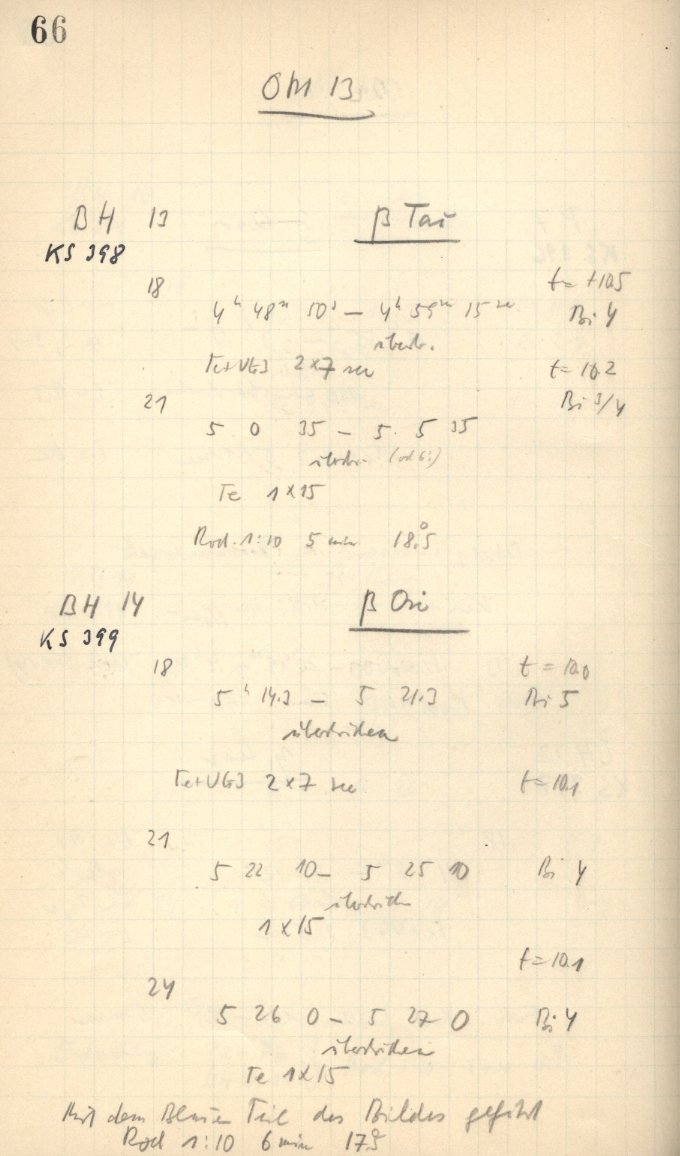 66
OM 13
BH 13 β Tau
KS 398
18 t = +10.5
4ʰ 48ᵐ 50ˢ – 4ʰ 59ᵐ 15 sec Bi 4
überb.
Te+UG3 2×7 sec t = 10.2
21 Bi 3/4
5 0 35 – 5 5 35
(od 6?)
Te 1×15
Rod. 1:10 5 min 18°.5
BH 14 β Ori
KS 399
18 t = 10.0
5ʰ 14.3 – 5 21.3 Bi 5
überstrichen
Te+UG3 2×7 sec t = 10.1
21
5 22 10 – 5 25 10 Bi 4
1×15
t = 10.1
24
5 26 0 – 5 27 0 Bi 4
überstrichen
Te 1×15
Mit dem Blauen Teil des Bildes geführt
Rod 1:10 6 min